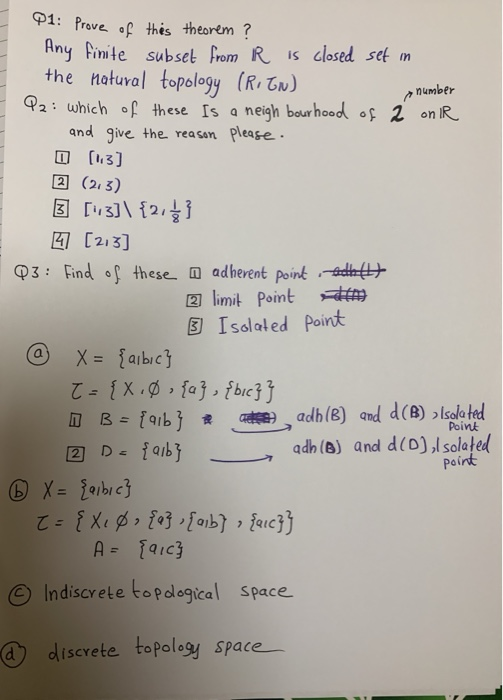 Q1: Prove of this theorem?
Any finite subset from ℝ is closed set in
the natural topology (R, τN)
number
Q2: which of these Is a neigh bourhood of 2 on ℝ
and give the reason please.
1 [1,3]
2 (2,3)
3 [1,3] \ {2, 1/8}
4 [2,3]
Q3: Find of these 1 adherent point.
2 limit point
3 Isolated point
a X = {a,b,c}
τ = {X, ∅, {a}, {b,c}}
1 B = {a,b} adh(B) and d(B), Isolated
point
2 D = {a,b} adh(B) and d(D), Isolated
point
b X = {a,b,c}
τ = {X, ∅, {a}, {a,b}, {a,c}}
A = {a,c}
c Indiscrete topological space
d discrete topology space